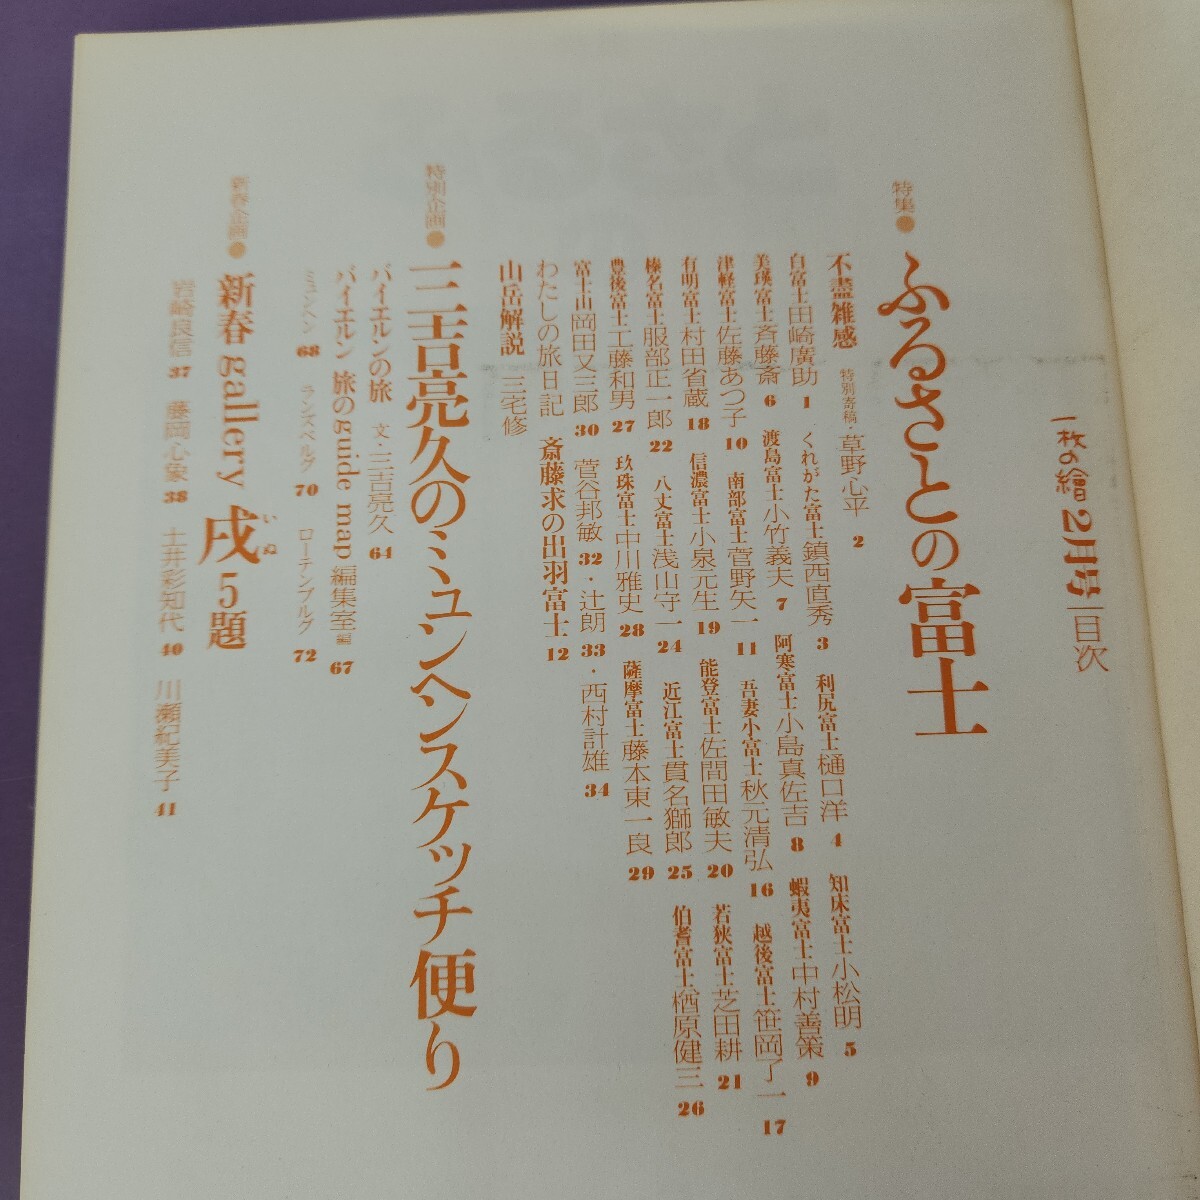 一枚の繪2月号 目次
特集● ふるさとの富士
不盡雑感 特別寄稿・草野心平 2
白富士 田崎廣助 1 くれがた富士 鎮西直秀 3 利尻富士 樋口洋 4 知床富士 小松明 5
美瑛富士 斉藤斎 6 渡島富士 小竹義夫 7 阿寒富士 小島真佐吉 8 蝦夷富士 中村善策 9
津軽富士 佐藤あつ子 10 南部富士 菅野矢一 11 吾妻小富士 秋元清弘 16 越後富士 笹岡了一 17
有明富士 村田省蔵 18 信濃富士 小泉元生 19 能登富士 佐間田敏夫 20 若狭富士 芝田耕 21
榛名富士 服部正一郎 22 八丈富士 浅山守一 24 近江富士 貫名獅郎 25 伯耆富士 楢原健三 26
豊後富士 工藤和男 27 玖珠富士 中川雅史 28 薩摩富士 藤本東一良 29
富士山 岡田又三郎 30 菅谷邦敏 32・辻朗 33・西村計雄 34
わたしの旅日記 斎藤求の出羽富士 12
山岳解説 三宅修
特別企画● 三吉亮久のミュンヘンスケッチ便り
バイエルンの旅 文・三吉亮久 64
バイエルン 旅のguide map 編集室編 67
ミュンヘン 68 ランズベルグ 70 ローテンブルグ 72
新春企画● 新春gallery 戌いぬ5題
岩崎良信 37 藤岡心象 38 土井彩知代 40 川瀬紀美子 41